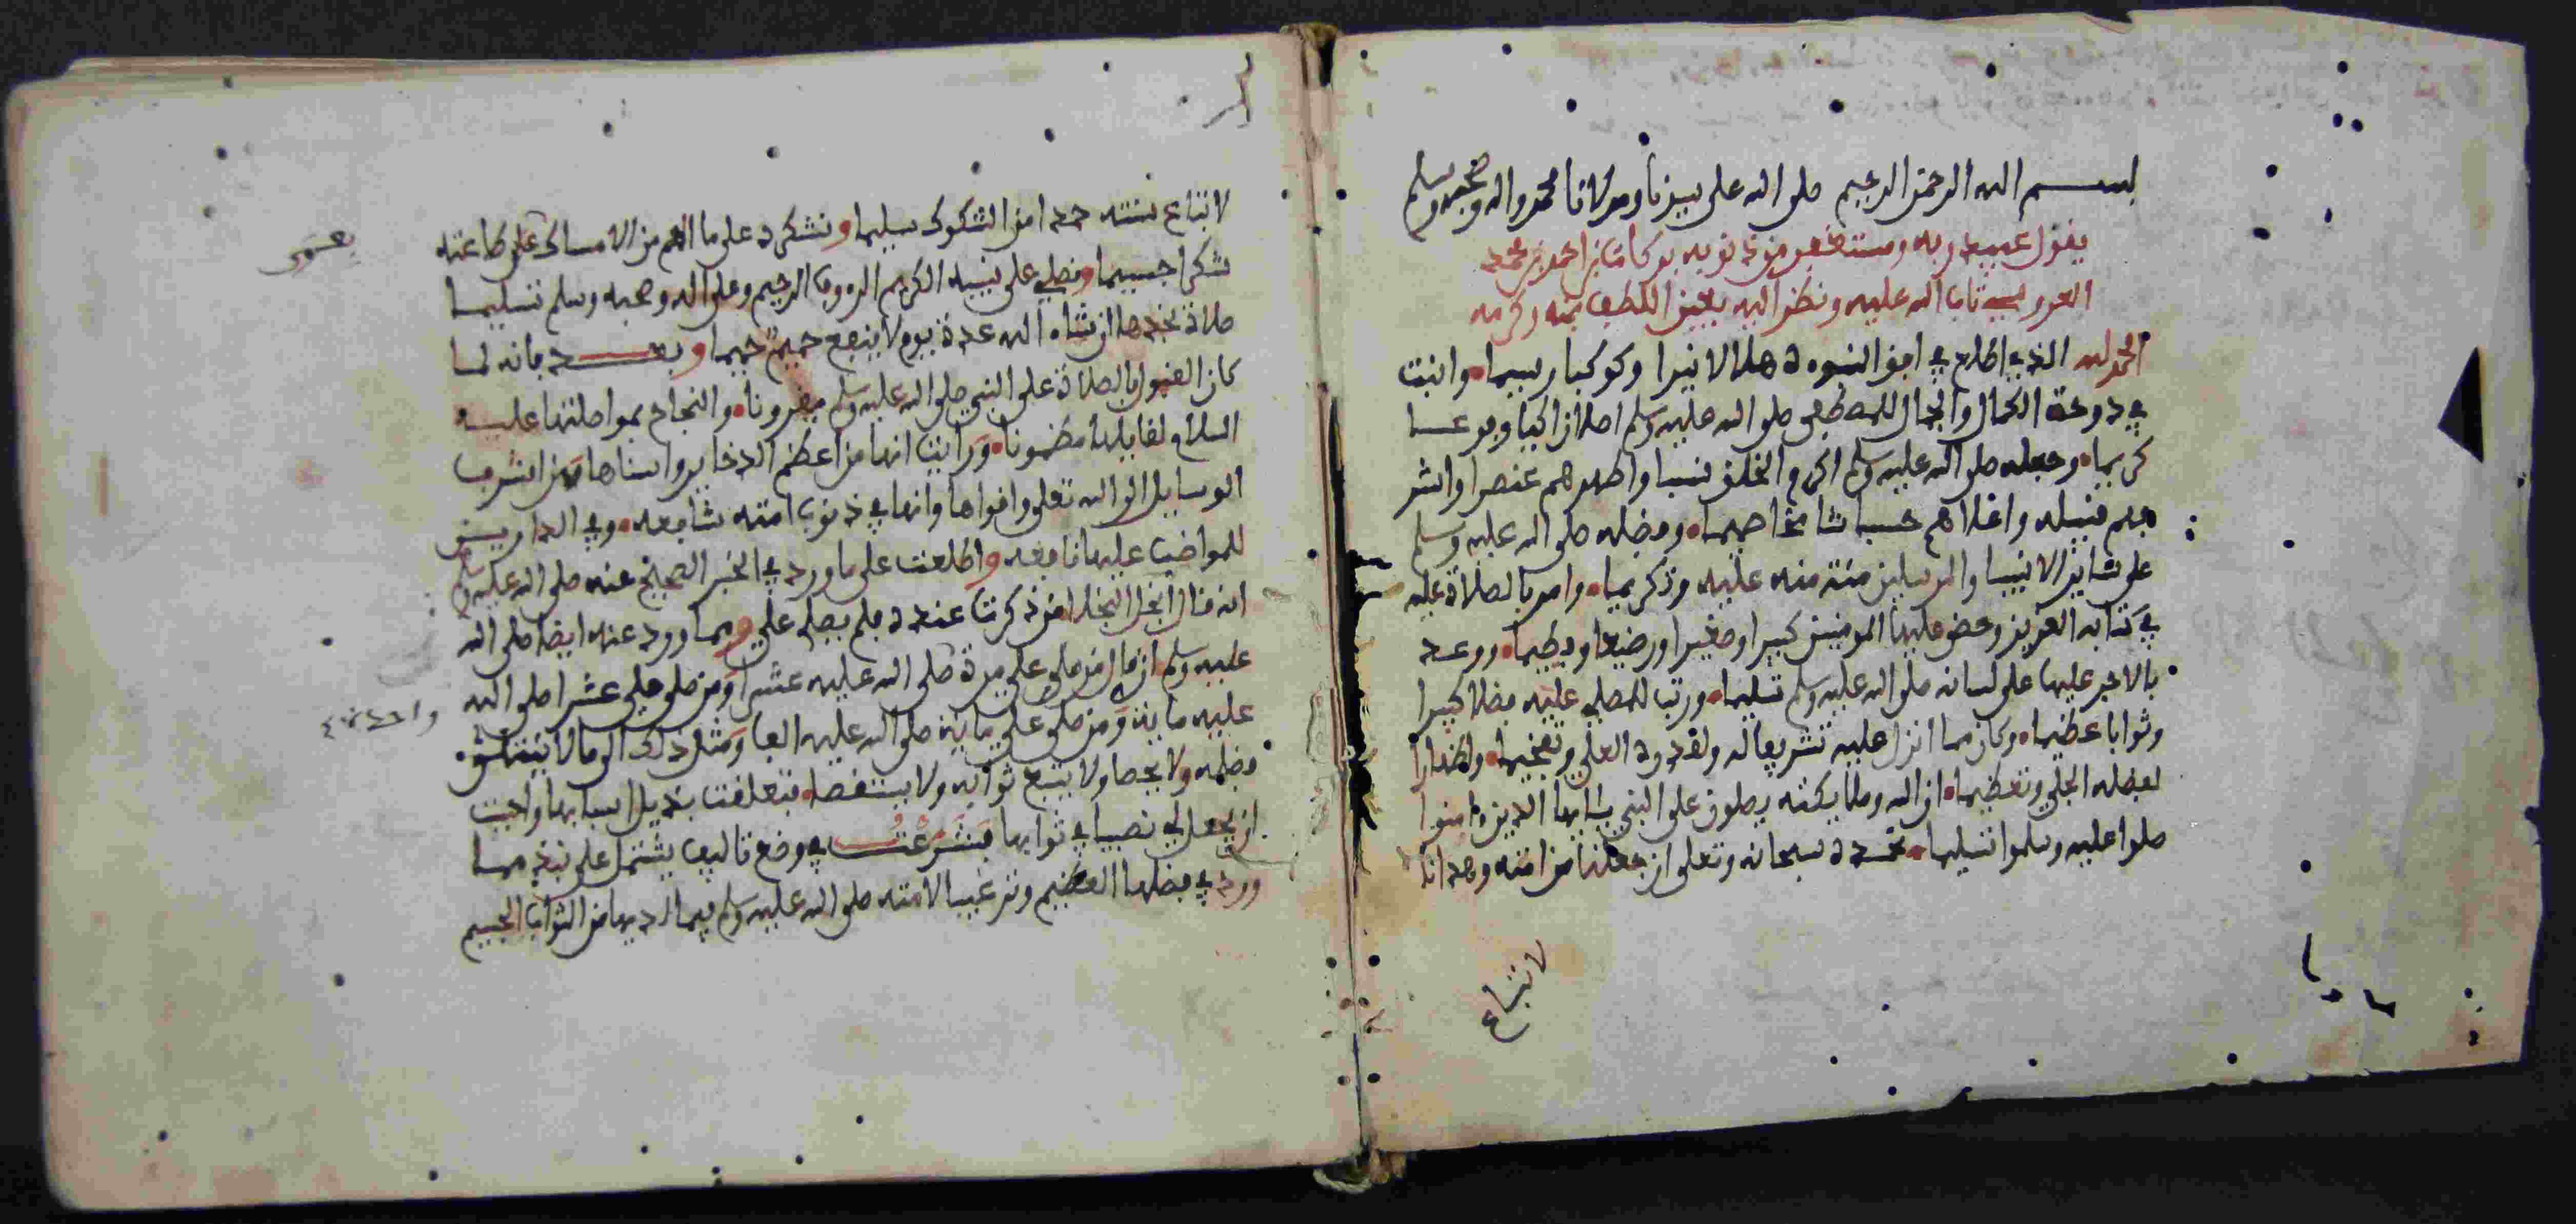 بسم الله الرحمن الرحيم صلى الله على سيدنا ومولانا محمد واله وصحبه وسلم
يقول عبيد ربه ومستغفره من ذنوبه بركات بن احمد بن محمد
العروسي تاب الله عليه ونظر اليه بعين اللطف بمنه وكرمه
الحمد لله الذي اطلع في افق النبوة هلالا نيرا وكوكبا وسيما وانبت
في دوحة الكمال والجمال للمصطفى صلى الله عليه وسلم اصلا زاكيا وفرعا
كريما وجعله صلى الله عليه وسلم اكرم الخلق نسبا واطهرهم عنصرا واشر
فهم قبيله واعلاهم حسبا شامخا صميما وفضله صلى الله عليه وسلم
على سائر الانبيا والمرسلين منة منه عليه وتكريما وامر بالصلاة عليه
في كتابه العزيز وحض عليها المومنين كبيرا وصغيرا ورضيعا وفطيما ووعد
بالاجر عليها على لسانه صلى الله عليه وسلم تسليما ورتب للمصلي عليه فضلا كبيرا
وثوابا عظيما وكان مما انزل عليه تشريفا له ولقدره العلي وتفخيما واظهارا
لفضله الجلي وتعظيما ان الله وملايكته يصلون على النبي يايها الذين ءامنوا
صلوا عليه وسلموا تسليما نحمده سبحانه وتعلى ان جعلنا من امته وهدانا
لاتباع
لاتباع سنته حمدا من الشكوك سليما ونشكره على ما الهم من الامساك على طاعته
شكرا جسيما ونصلي على نبيه الكريم الرءوف الرحيم وعلى اله وصحبه وسلم تسليما
صلاة نجدها ان شاء الله عدة يوم لا ينفع حميم حميما وبعد فانه لما
كان القبول بالصلاة على النبي صلى الله عليه وسلم مقرونا والنجاح بمواصلتها عليه
السلام لقايلها مضمونا ورايت انها من اعظم الذخاير واسناها ومن اشرف
الوسايل الى الله تعلى واقواها وانها في ذنوب امته شافعه وفي الدارين
للمواضب عليها نافعه واطلعت على ما ورد في الخبر الصحيح عنه صلى الله عليه وسلم
انه قال ابخل البخلا من ذكرت عنده فلم يصلي علي ومما ورد عنه ايضا صلى الله
عليه وسلم ان قال من صلى علي مرة صلى الله عليه عشرا ومن صلى علي عشرا صلى الله
عليه ماية ومن صلى علي ماية صلى الله عليه الفا ومثل ذلك الى ما لا يتناهى
فضله ولا يحصا ولا يتبع ثوابه ولا يستقصا فتعلقت بذيل اسبابها واحببت
ان يجعل لي نصيبا في ثوابها فشرعت في وضع تاليف يشتمل على نبذ مما
ورد في فضلها العظيم وترغيبا لامته صلى الله عليه وسلم فيما لديها من الثواب الجسيم